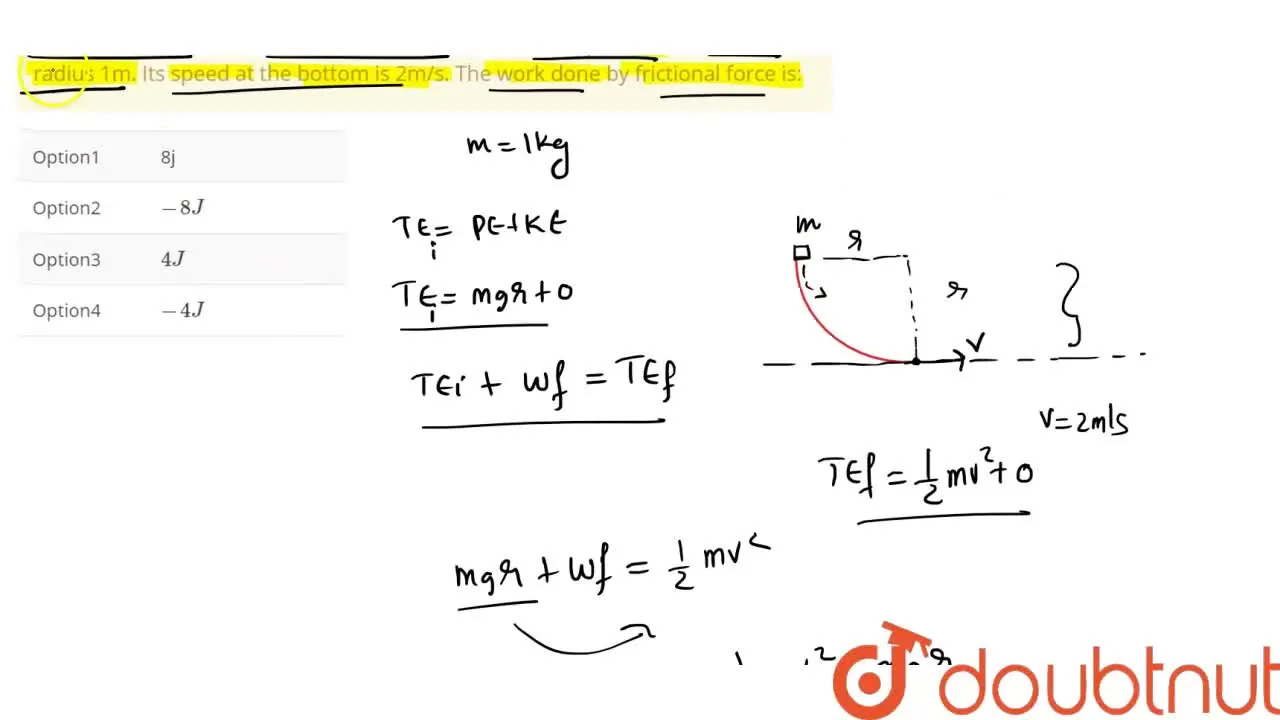 radius 1m. Its speed at the bottom is 2m/s. The work done by frictional force is:
Option1 8j
Option2 −8J
Option3 4J
Option4 −4J
m = 1kg
TEi = PE+KE
TEi = mgr + 0
TEi + Wf = TEf
m
r
r
V
V = 2m/s
TEf = 1/2 mv² + 0
mgr + Wf = 1/2 mv²
doubtnut